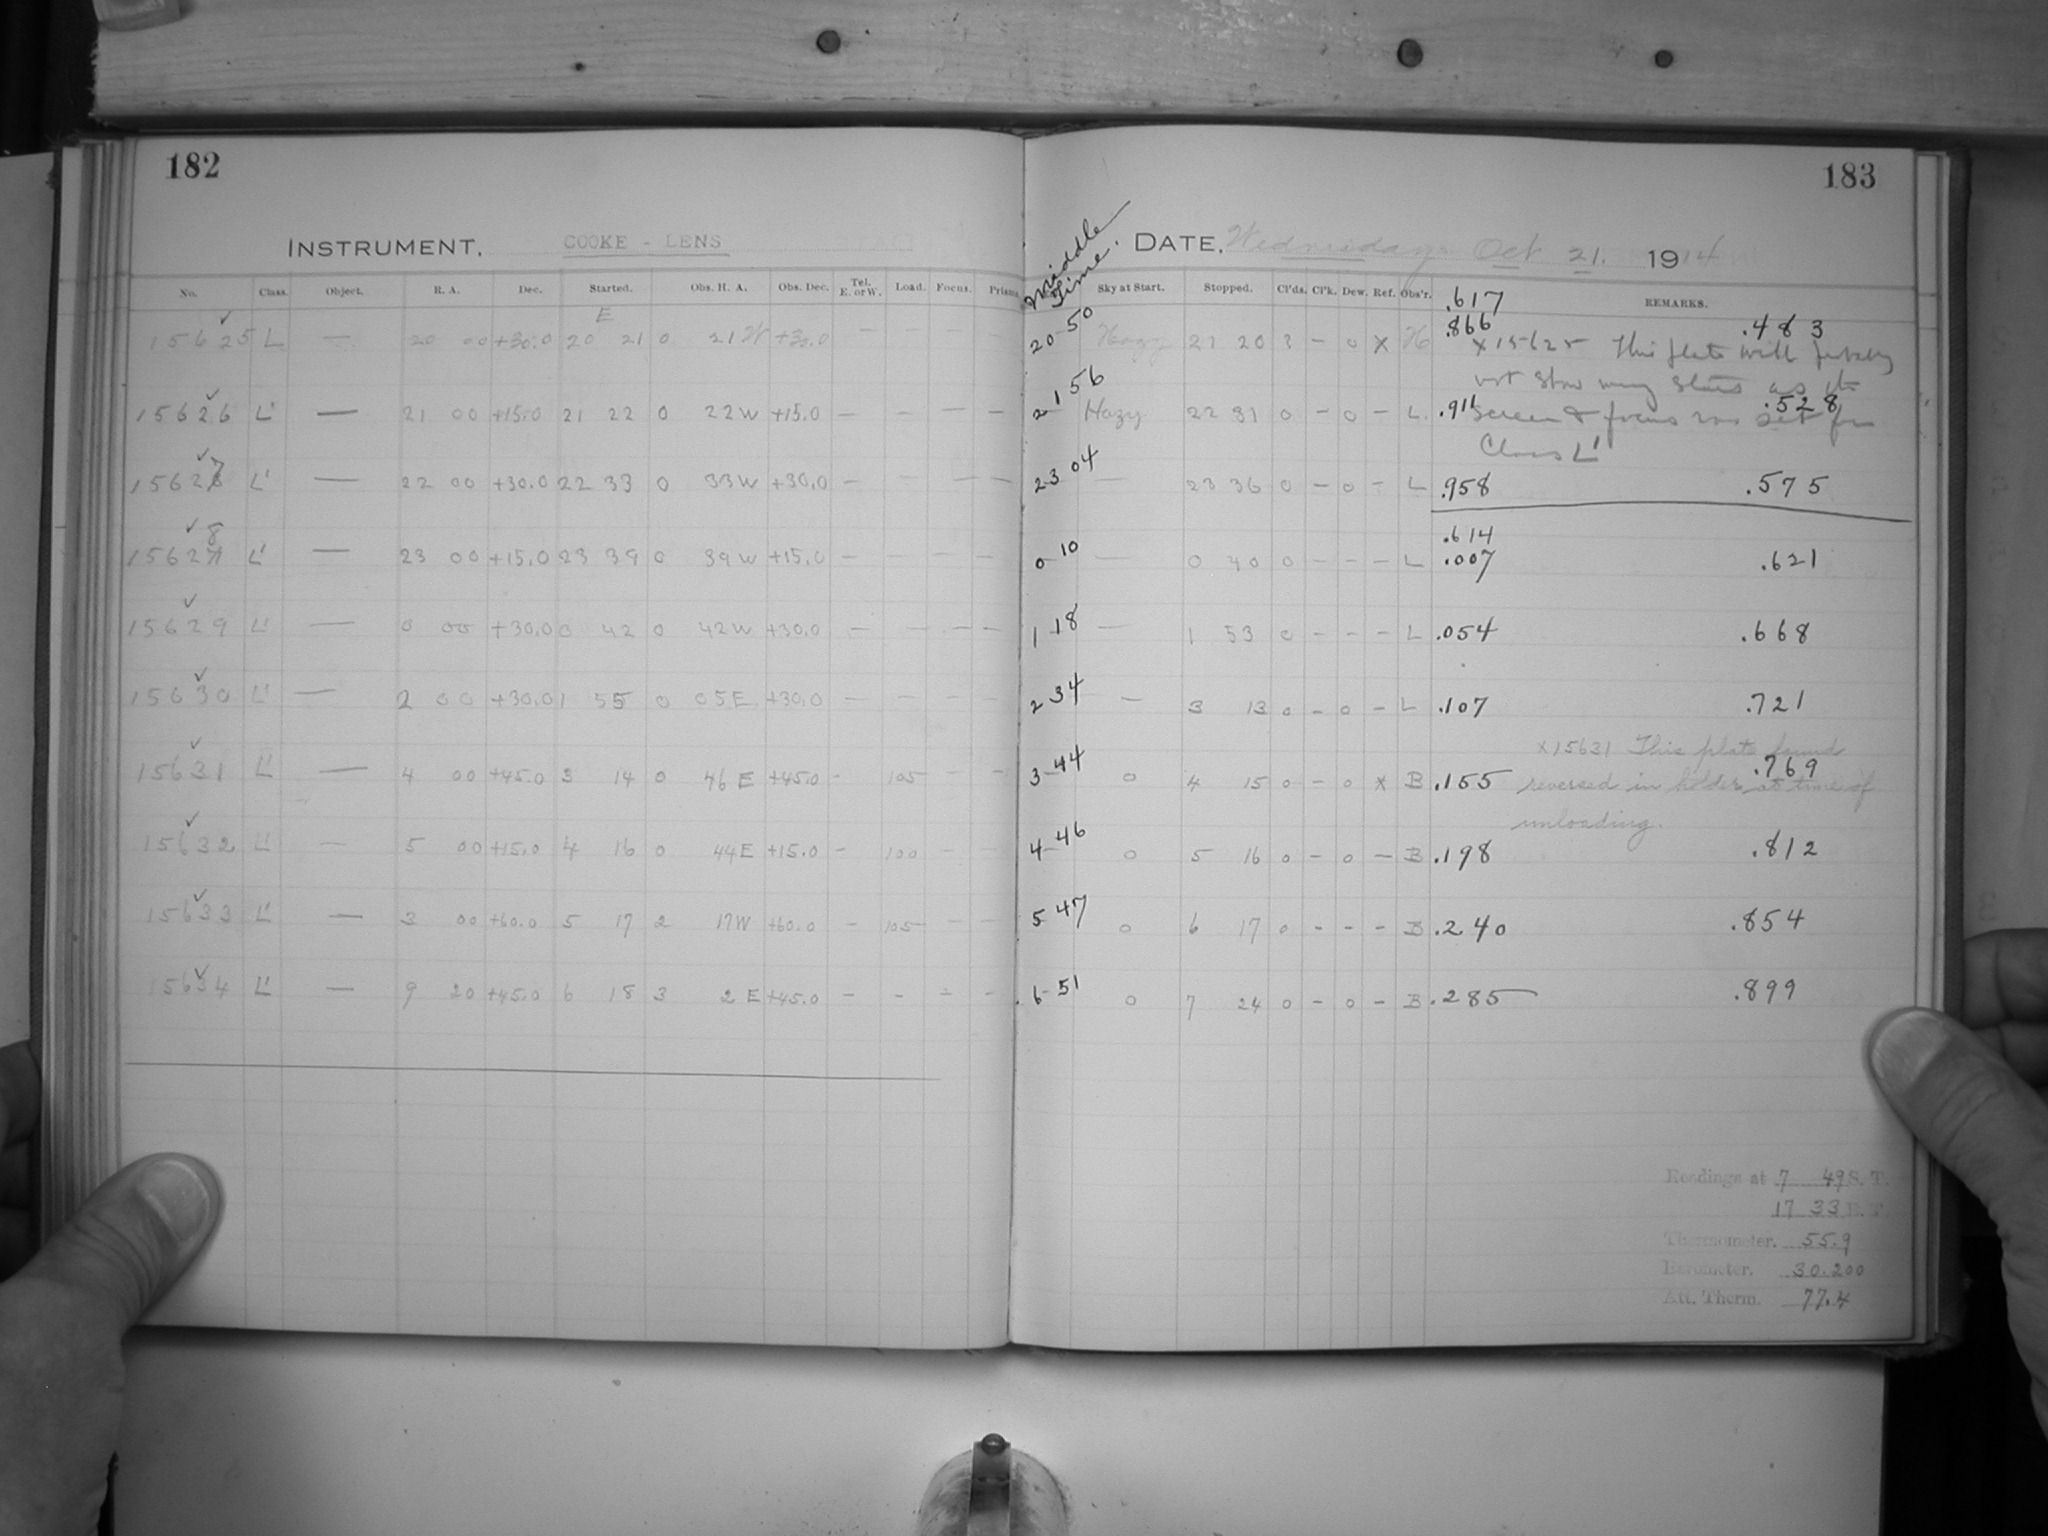 182
INSTRUMENT. COOKE - LENS
No. Class. Object. R. A. Dec. Started. Obs. H. A. Obs. Dec. Tel. E. or W. Load. Focus. Prisms
E
15625 L — 20 00 +30.0 20 21 0 21 W +30.0 — — — —
15626 L' — 21 00 +15.0 21 22 0 22 W +15.0 — — — —
15627 L' — 22 00 +30.0 22 33 0 33 W +30.0 — — — —
15628 L' — 23 00 +15.0 23 39 0 39 W +15.0 — — — —
15629 L' — 0 00 +30.0 0 42 0 42 W +30.0 — — — —
15630 L' — 2 00 +30.0 1 55 0 05 E +30.0 — — — —
15631 L' — 4 00 +45.0 3 14 0 46 E +45.0 - 105 - -
15632 L' — 5 00 +15.0 4 16 0 44 E +15.0 - 100 - -
15633 L' — 3 00 +60.0 5 17 2 17 W +60.0 - 105 - -
15634 L' — 9 20 +45.0 6 18 3 2 E +45.0 - - - -
183
DATE. Wednesday Oct 21. 1914
Middle Time. Sky at Start. Stopped. Cl'ds. Cl'k. Dew. Ref. Obs'r. REMARKS.
.617
20-50 Hazy 21 20 ? - 0 x H .866 .483
x 15625 This plate will probably
not show many stars as the
21 56 Hazy 22 31 0 - 0 - L. .911 .528
screen & focus was set for
Class L'
23 04 — 23 36 0 - 0 - L .958 .575
.614
0-10 — 0 40 0 - - - L .007 .621
1-18 — 1 53 0 - - - L .054 .668
2 34 — 3 13 0 - 0 - L .107 .721
x 15631 This plate found
3-44 0 4 15 0 - 0 x B .155 .769
reversed in holder at time of
unloading.
4-46 0 5 16 0 - 0 - B .198 .812
5-47 0 6 17 0 - - - B .240 .854
6-51 0 7 24 0 - 0 - B .285 .899
Readings at 7 49 S. T.
17 33
Thermometer. 55.9
Barometer. 30.200
Att. Therm. 77.4